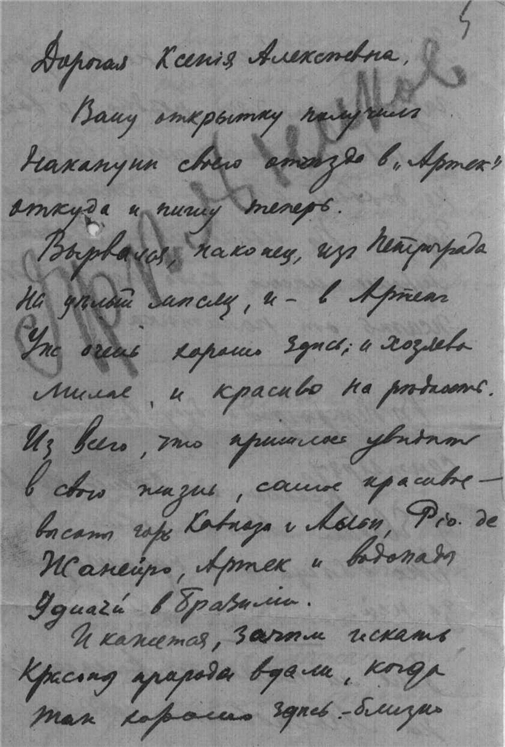 5
Дорогая Ксенія Алексѣевна,
Вашу открытку получилъ
наканунѣ своего отъѣзда в „Артек"
откуда и пишу теперь.
Вырвался, наконец, изъ Петрограда
на цѣлый мѣсяц, и – в Артекъ
Уж очень хорошо здѣсь; и хозяева
милые, и красиво на рѣдкость.
Из всего, что пришлось увидѣть
в свою жизнь, самое красивое –
высоты горъ Кавказа и Альпы, Ріо. де
Жанейро, Артек и водопады
в Бразиліи.
И кажется, зачѣм искать
красоту природы вдали, когда
так хорошо здѣсь – близко